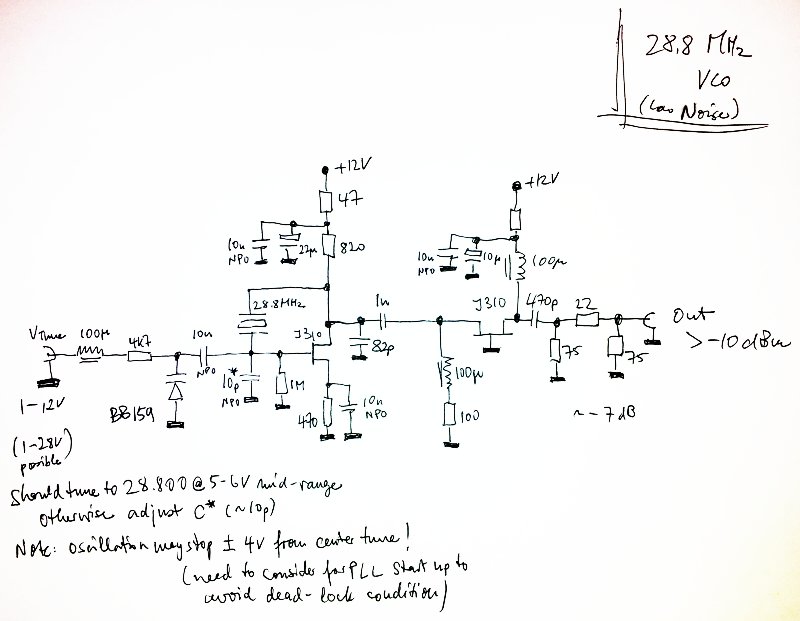 28.8 MHz
VCO
(Low Noise)
+12V
47
10n
NPO
22µ
820
+12V
10n
NPO
10µ
100µ
28.8MHz
1n
J310
470p
22
Out
> -10 dBm
VTune
100µ
4k7
10n
NPO
J310
82p
75
75
1-12V
BB159
10p*
NPO
1M
470
10n
NPO
100µ
100
~ -7dB
(1-28V)
possible
Should tune to 28.800 @ 5-6V mid-range
otherwise adjust C* (~10p)
Note: oscillation may stop ± 4V from center tune!
(need to consider for PLL start up to
avoid dead-lock condition)